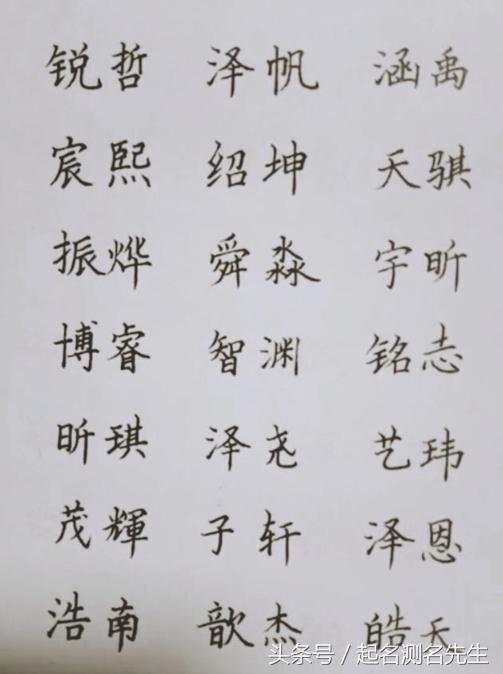 锐哲 泽帆 涵禹
宸熙 绍坤 天骐
振烨 舜淼 宇昕
博睿 智渊 铭志
昕琪 泽尧 艺玮
茂輝 子轩 泽恩
浩南 歆杰 皓天
头条号 / 起名测名先生